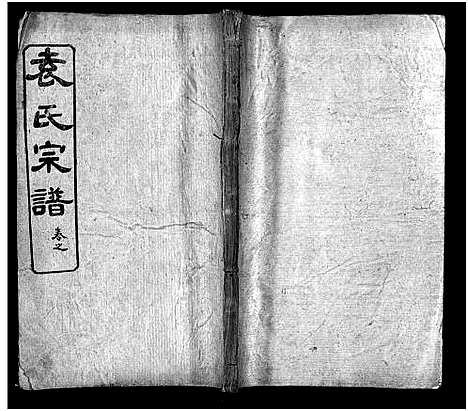 袁氏宗譜
卷之